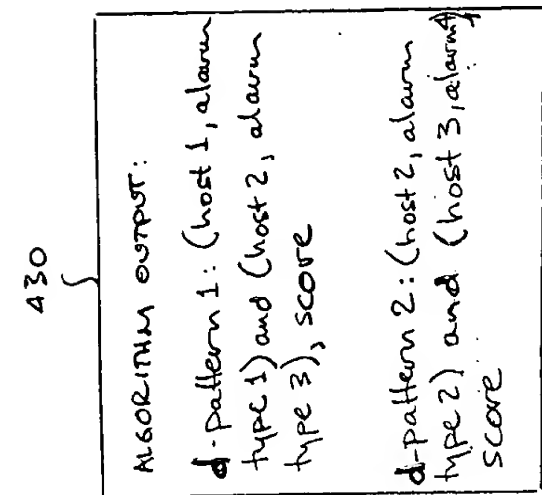 430
ALGORITHM OUTPUT:
d-pattern 1: (host 1, alarm
type 1) and (host 2, alarm
type 3), score
d-pattern 2: (host 2, alarm
type 2) and (host 3, alarm 4)
score